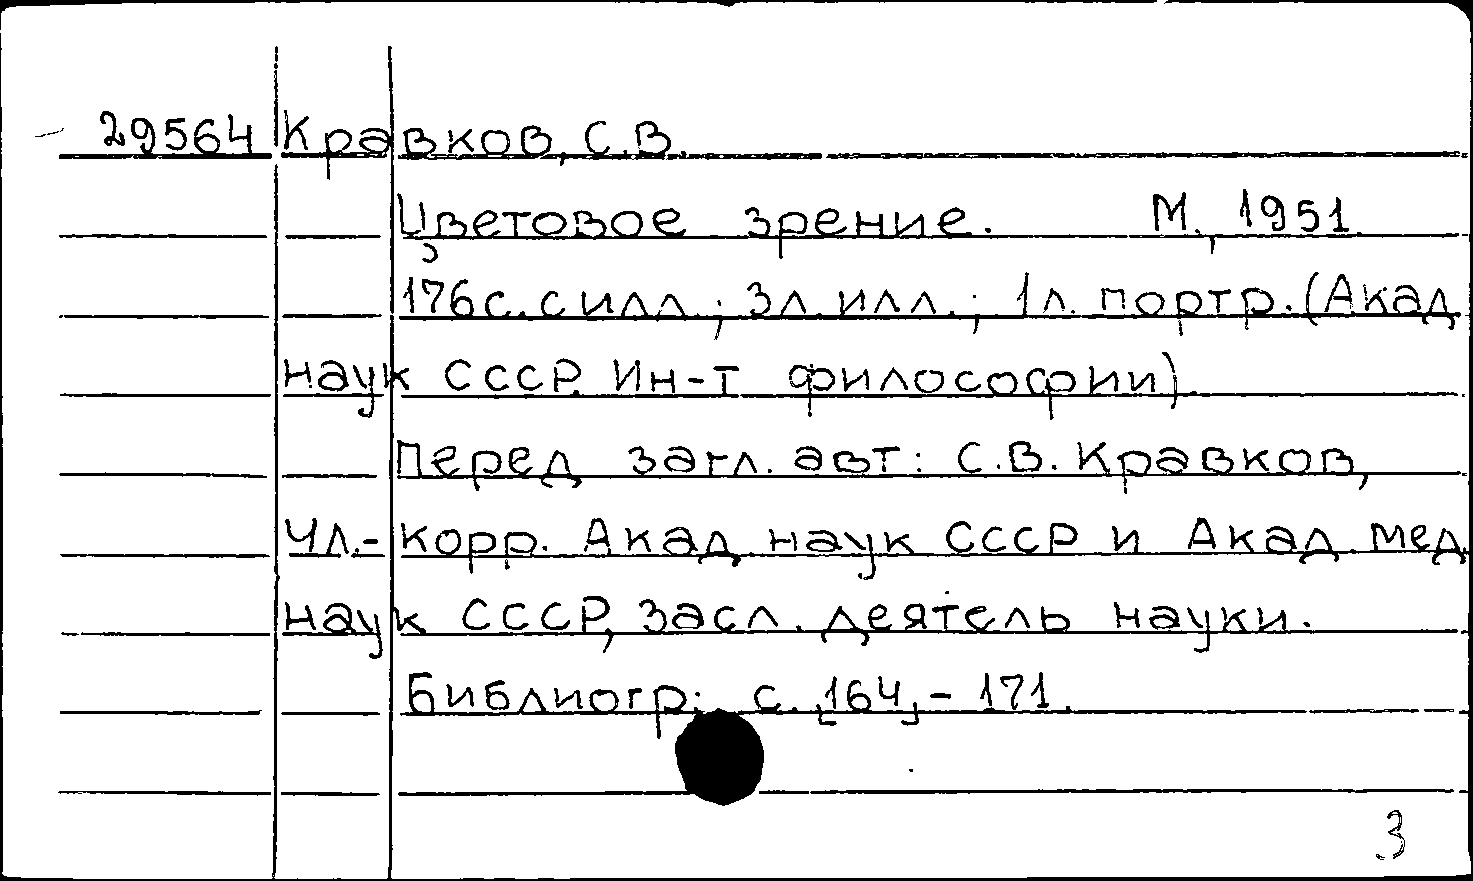 29564 Кравков, С.В.
Цветовое зрение. М., 1951.
176с. с илл.; 3л. илл.; 1л. портр. (Акад
наук СССР. Ин-т философии)
Перед загл. авт.: С.В. Кравков,
чл.-корр. Акад. наук СССР и Акад. мед
наук СССР, засл. деятель науки.
Библиогр.: с. [164] - 171.
3